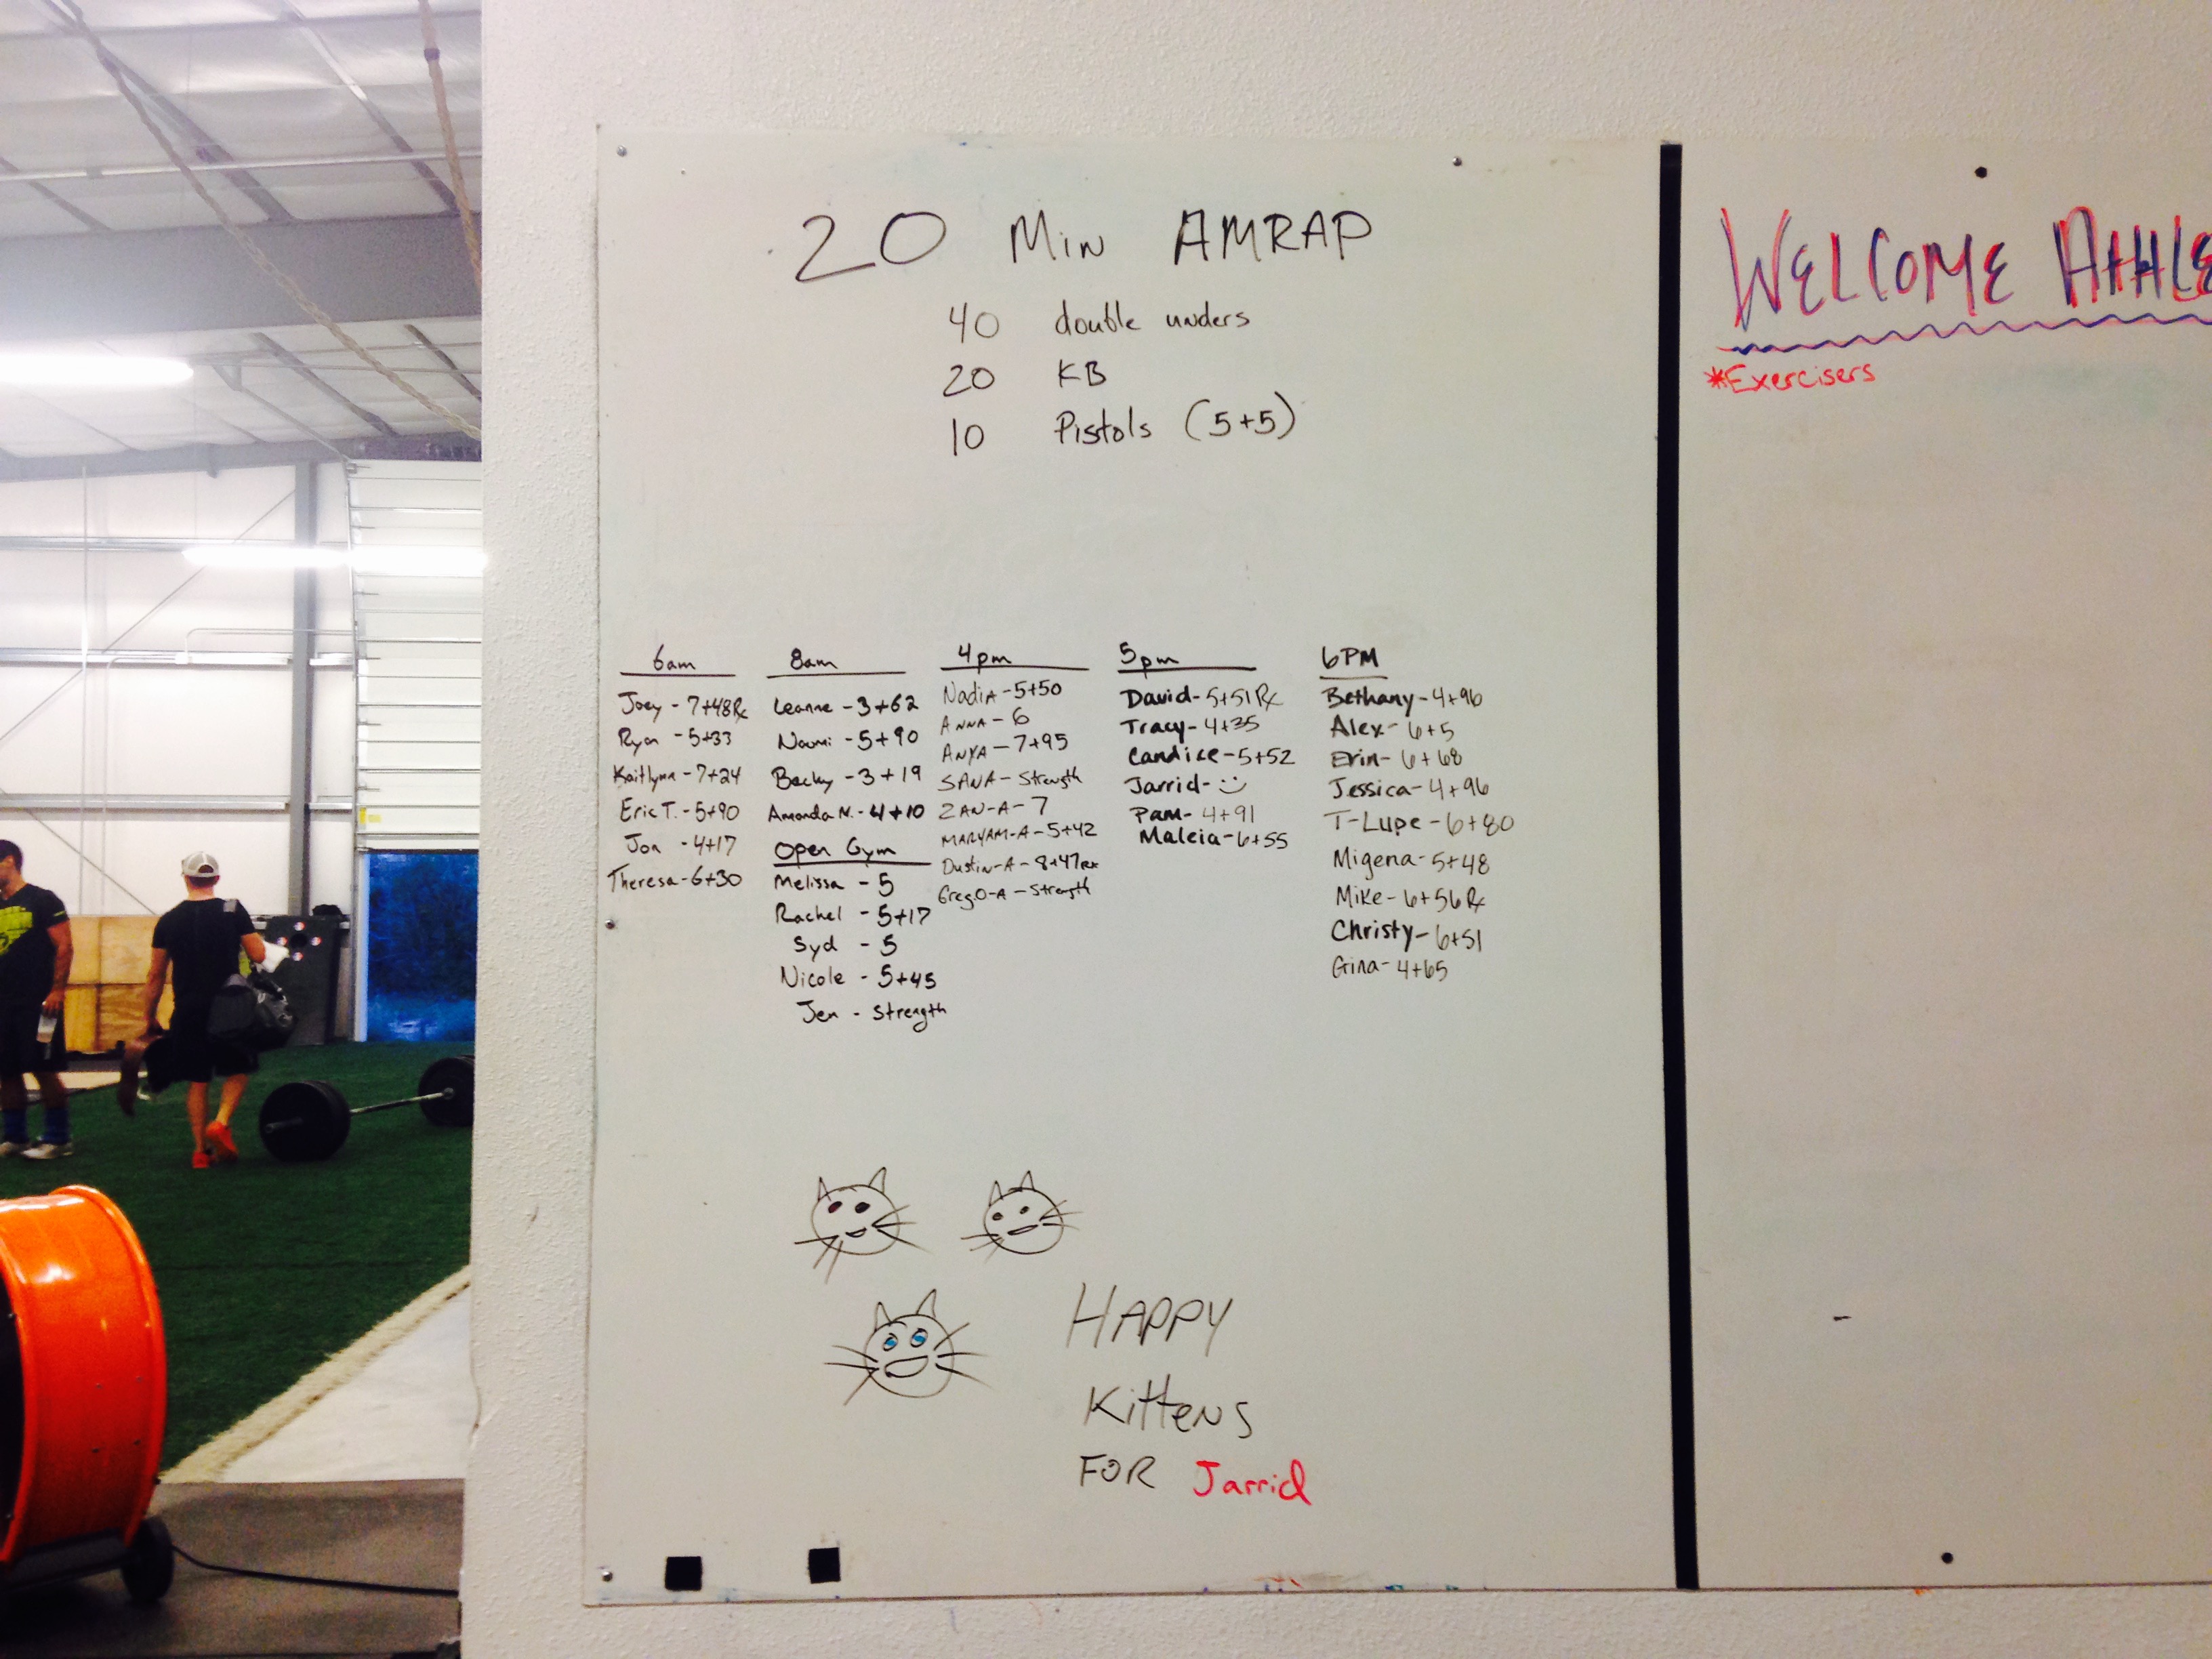 20 Min AMRAP
40 double unders
20 KB
10 Pistols (5+5)
6am
Joey - 7+48Rx
Ryan - 5+33
Kaitlynn - 7+24
Eric T. - 5+90
Jon - 4+17
Theresa - 6+30
8am
Leanne - 3+62
Naomi - 5+90
Becky - 3+19
Amanda N. - 4+10
Open Gym
Melissa - 5
Rachel - 5+17
Syd - 5
Nicole - 5+45
Jen - Strength
4pm
NadiA - 5+50
ANNA - 6
ANYA - 7+95
SANA - Strength
ZAN-A - 7
MARYAM-A - 5+42
Dustin-A - 8+47Rx
GregO-A - Strength
5pm
David - 5+51Rx
Tracy - 4+35
Candice - 5+52
Jarrid - :)
Pam - 4+91
Maleia - 6+55
6PM
Bethany - 4+96
Alex - 6+5
Erin - 6+68
Jessica - 4+96
T-Lupe - 6+80
Migena - 5+48
Mike - 6+56Rx
Christy - 6+51
Gina - 4+65
HAPPY
Kittens
FOR Jarrid
WELCOME AthLE
*Exercisers